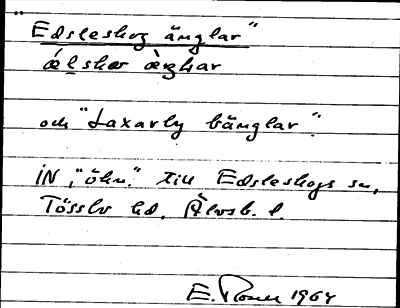 "Edsleskog änglar"
ǽlskoʀ ä̀ŋlar
och "Laxarby bänglar".
IN, "ökn." till Edsleskogs sn,
Tössbo hd, Älvsb. l.
E. Rosen 1964